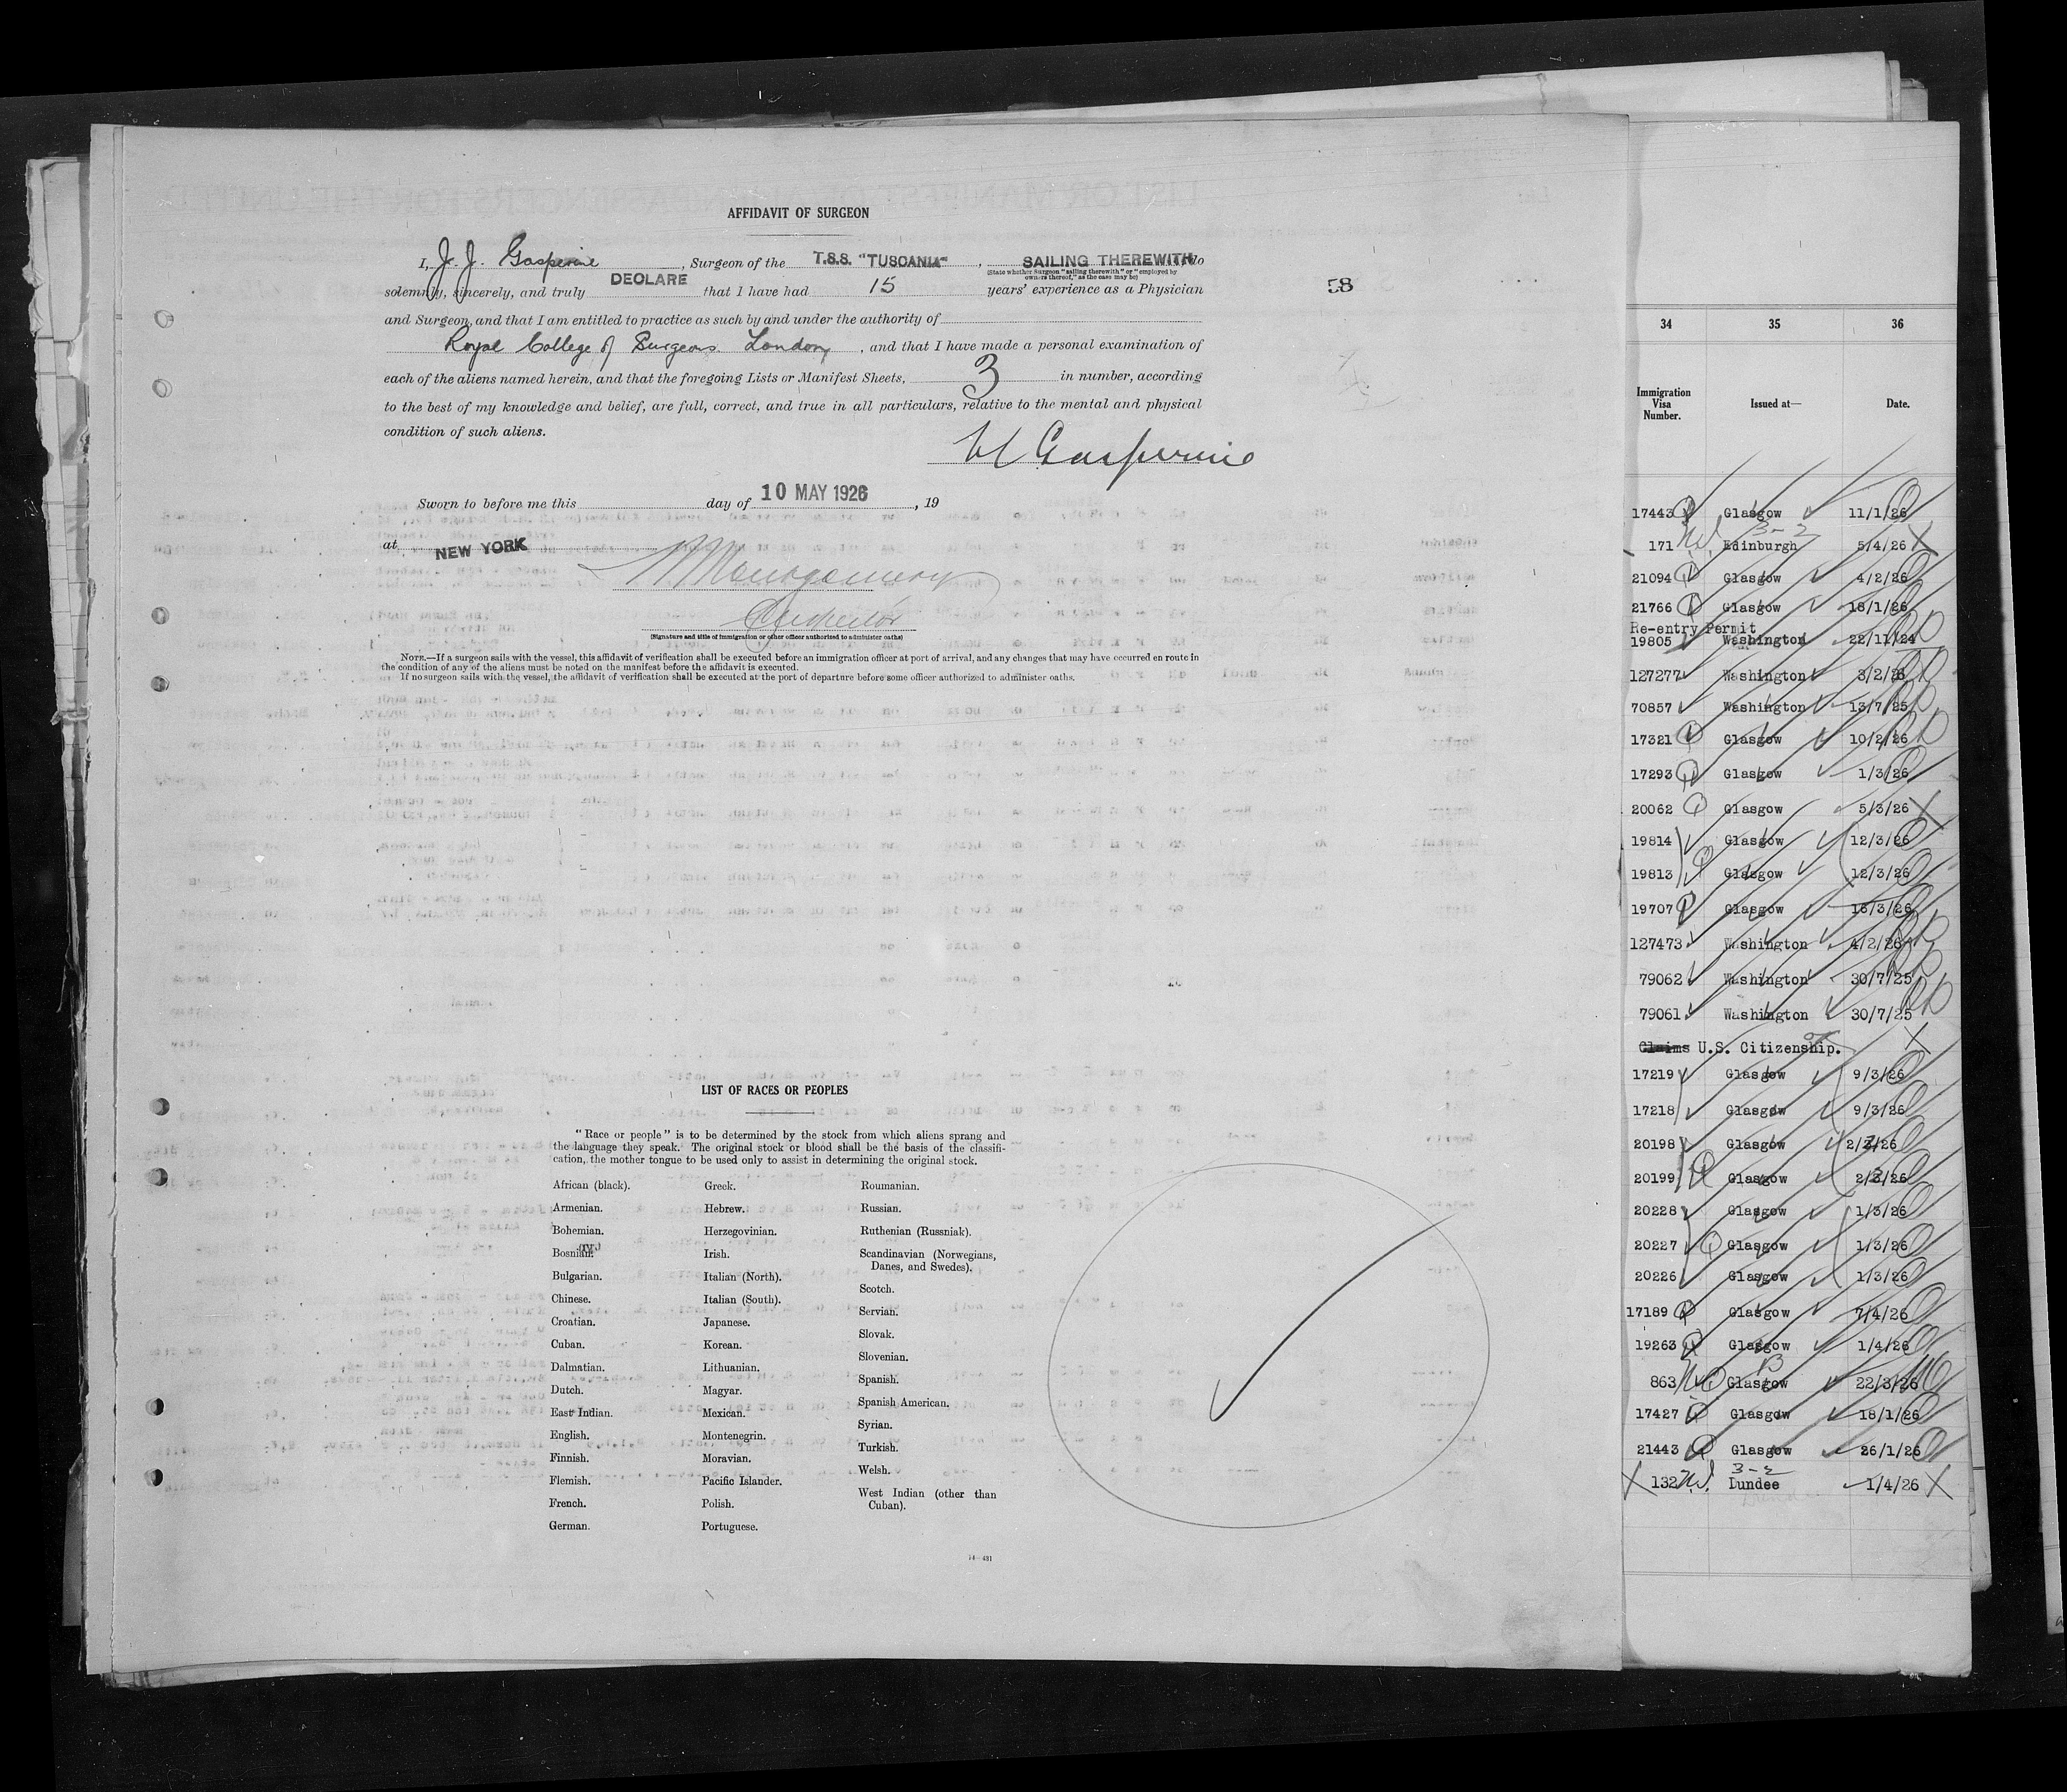 AFFIDAVIT OF SURGEON
I, J. J. Gasperine, Surgeon of the T.S.S. "TUSCANIA", SAILING THEREWITH, do
(State whether Surgeon "sailing therewith" or "employed by
owners thereof," as the case may be)
solemnly, sincerely, and truly DECLARE that I have had 15 years' experience as a Physician
58
and Surgeon, and that I am entitled to practice as such by and under the authority of
Royal College of Surgeons London, and that I have made a personal examination of
each of the aliens named herein, and that the foregoing Lists or Manifest Sheets, 3 in number, according
to the best of my knowledge and belief, are full, correct, and true in all particulars, relative to the mental and physical
condition of such aliens.
Gasperine
Sworn to before me this day of 10 MAY 1926, 19
at NEW YORK
Montgomery
Inspector
(Signature and title of immigration or other officer authorized to administer oaths)
NOTE.—If a surgeon sails with the vessel, this affidavit of verification shall be executed before an immigration officer at port of arrival, and any changes that may have occurred en route in
the condition of any of the aliens must be noted on the manifest before the affidavit is executed.
If no surgeon sails with the vessel, the affidavit of verification shall be executed at the port of departure before some officer authorized to administer oaths.
LIST OF RACES OR PEOPLES
"Race or people" is to be determined by the stock from which aliens sprang and
the language they speak. The original stock or blood shall be the basis of the classifi-
cation, the mother tongue to be used only to assist in determining the original stock.
African (black).
Armenian.
Bohemian.
Bosnian.
Bulgarian.
Chinese.
Croatian.
Cuban.
Dalmatian.
Dutch.
East Indian.
English.
Finnish.
Flemish.
French.
German.
Greek.
Hebrew.
Herzegovinian.
Irish.
Italian (North).
Italian (South).
Japanese.
Korean.
Lithuanian.
Magyar.
Mexican.
Montenegrin.
Moravian.
Pacific Islander.
Polish.
Portuguese.
Roumanian.
Russian.
Ruthenian (Russniak).
Scandinavian (Norwegians,
Danes, and Swedes).
Scotch.
Servian.
Slovak.
Slovenian.
Spanish.
Spanish American.
Syrian.
Turkish.
Welsh.
West Indian (other than
Cuban).
14—431
34 35 36
Immigration
Visa
Number. Issued at— Date.
17443 Glasgow 11/1/26
3-2
171 Edinburgh 5/4/26
21094 Glasgow 4/2/26
21766 Glasgow 18/1/26
Re-entry Permit
19805 Washington 22/11/24
127277 Washington 3/2/26
70857 Washington 13/7/25
17321 Glasgow 10/2/26
17293 Glasgow 1/3/26
20062 Glasgow 5/3/26
19814 Glasgow 12/3/26
19813 Glasgow 12/3/26
19707 Glasgow 16/3/26
127473 Washington 4/2/26
79062 Washington 30/7/25
79061 Washington 30/7/25
Claims U.S. Citizenship.
17219 Glasgow 9/3/26
17218 Glasgow 9/3/26
20198 Glasgow 2/3/26
20199 Glasgow 2/3/26
20228 Glasgow 1/3/26
20227 Glasgow 1/3/26
20226 Glasgow 1/3/26
17189 Glasgow 7/4/26
19263 Glasgow 1/4/26
863 Glasgow 22/3/26
17427 Glasgow 18/1/26
21443 Glasgow 26/1/26
3-2
132 Dundee 1/4/26